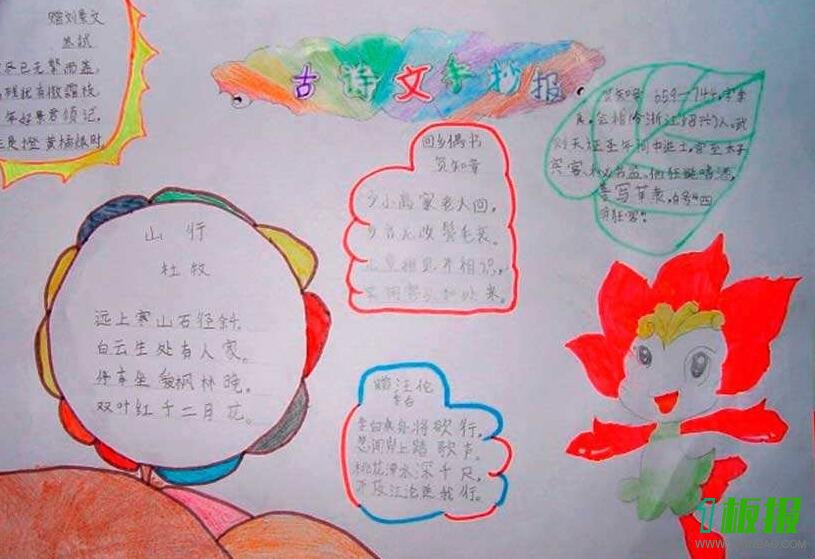 古诗文手抄报
赠刘景文
苏轼
尽已无擎雨盖,
残犹有傲霜枝,
年好景君须记,
是橙黄橘绿时.
山行
杜牧
远上寒山石径斜,
白云生处有人家,
停车坐爱枫林晚,
双叶红于二月花。
回乡偶书
贺知章
少小离家老大回,
乡音无改鬓毛衰,
儿童相见不相识,
笑问客从何处来。
赠汪伦
李白
李白乘舟将欲行,
忽闻岸上踏歌声。
桃花潭水深千尺,
不及汪伦送我行。
贺知章 659-744,字季
真,会稽(今浙江绍兴)人。武
则天证圣年间中进士,官至太子
宾客、秘书监。他狂诞嗜酒,
善写草隶,自号"四
明狂客"
板报